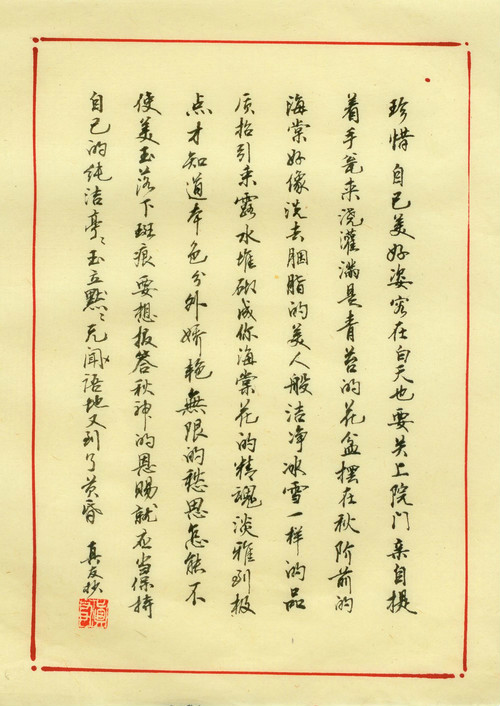 珍惜自己美好姿容在白天也要关上院门亲自提
着手瓮来浇灌满是青苔的花盆摆在秋阶前的
海棠好像洗去胭脂的美人般洁净冰雪一样的品
质招引来露水堆砌成你海棠花的精魂淡雅到极
点才知道本色分外娇艳無限的愁思怎能不
使美玉落下斑痕要想报答秋神的恩赐就应当保持
自己的纯洁亭々玉立默々无闻语地又到了黄昏
真友抄